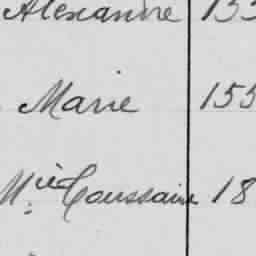 Alexandre 155
Marie 155
Mie Toussaint 18